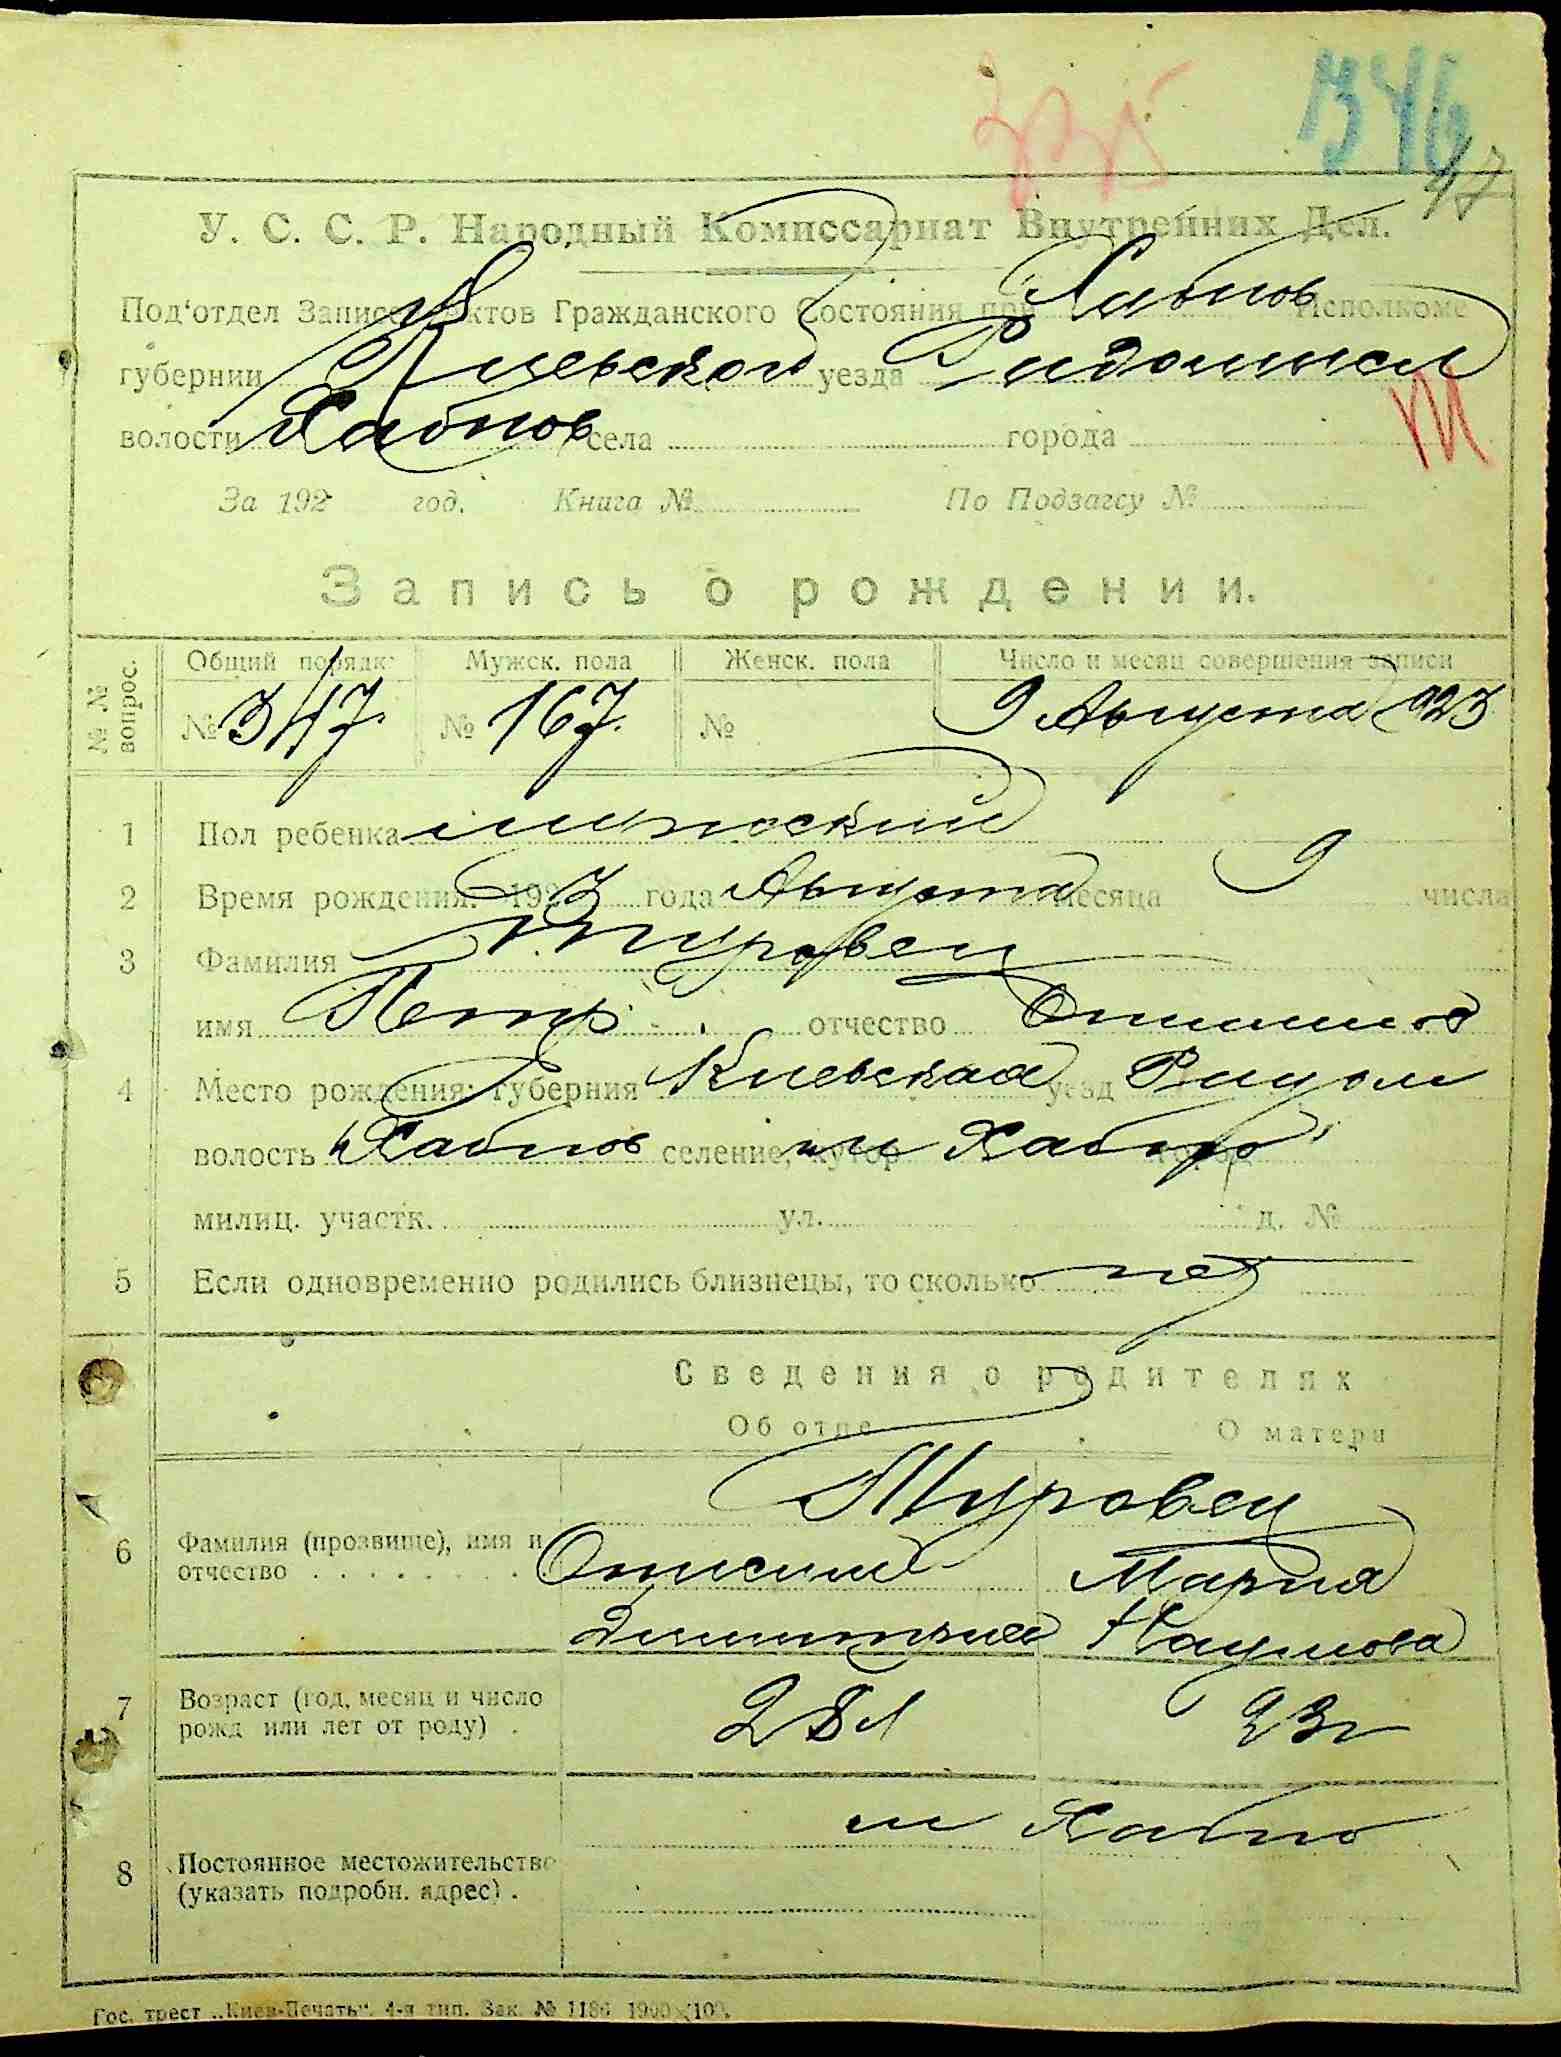 335 346
47
У. С. С. Р. Народный Комиссариат Внутрейних Дел.
Под'отдел Записи Актов Гражданского Состояния при Хабнов Исполкоме
губернии Киевской уезда Радомысл
волости Хабнов села города
За 192 год. Книга № По Подзагсу №
Запись о рождении.
№ № вопрос. Общий порядк. Мужск. пола Женск. пола Число и месяц совершения записи
№ 347. № 167. № 9 Августа 923
1 Пол ребенка мужской
2 Время рождения: 1923 года Августа месяца 9 числа
3 Фамилия Туровец
имя Петр отчество
4 Место рождения: губерния Киевская уезд Радом
волость Хабнов селение, хутор м Хабно город
милиц. участк. ул. д. №
5 Если одновременно родились близнецы, то сколько нет
Сведения о родителях
Об отце О матери
Туровец
6 Фамилия (прозвище), имя и отчество Онисим Мария
Наумова
7 Возраст (год, месяц и число рожд или лет от роду) 28 л 23 г
м Хабно
8 Постоянное местожительство
(указать подробн. адрес)
Гос. трест „Киев-Печать". 4-я тип. Зак. № 1186